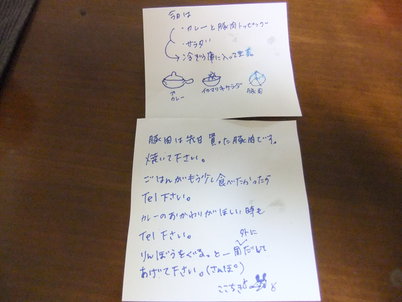 今日は
・カレーと豚肉トッピング
・サラダ
→冷ぞう庫に入ってます
カレー
豚肉
豚肉は先日買った豚肉です。
焼いて下さい。
ごはんがもう少し食べたかったら
Tel下さい。
カレーのおかわりがほしい時も
Tel下さい。
りんぼうをぐるっと一周外にだして
あげて下さい。(さんぽ)